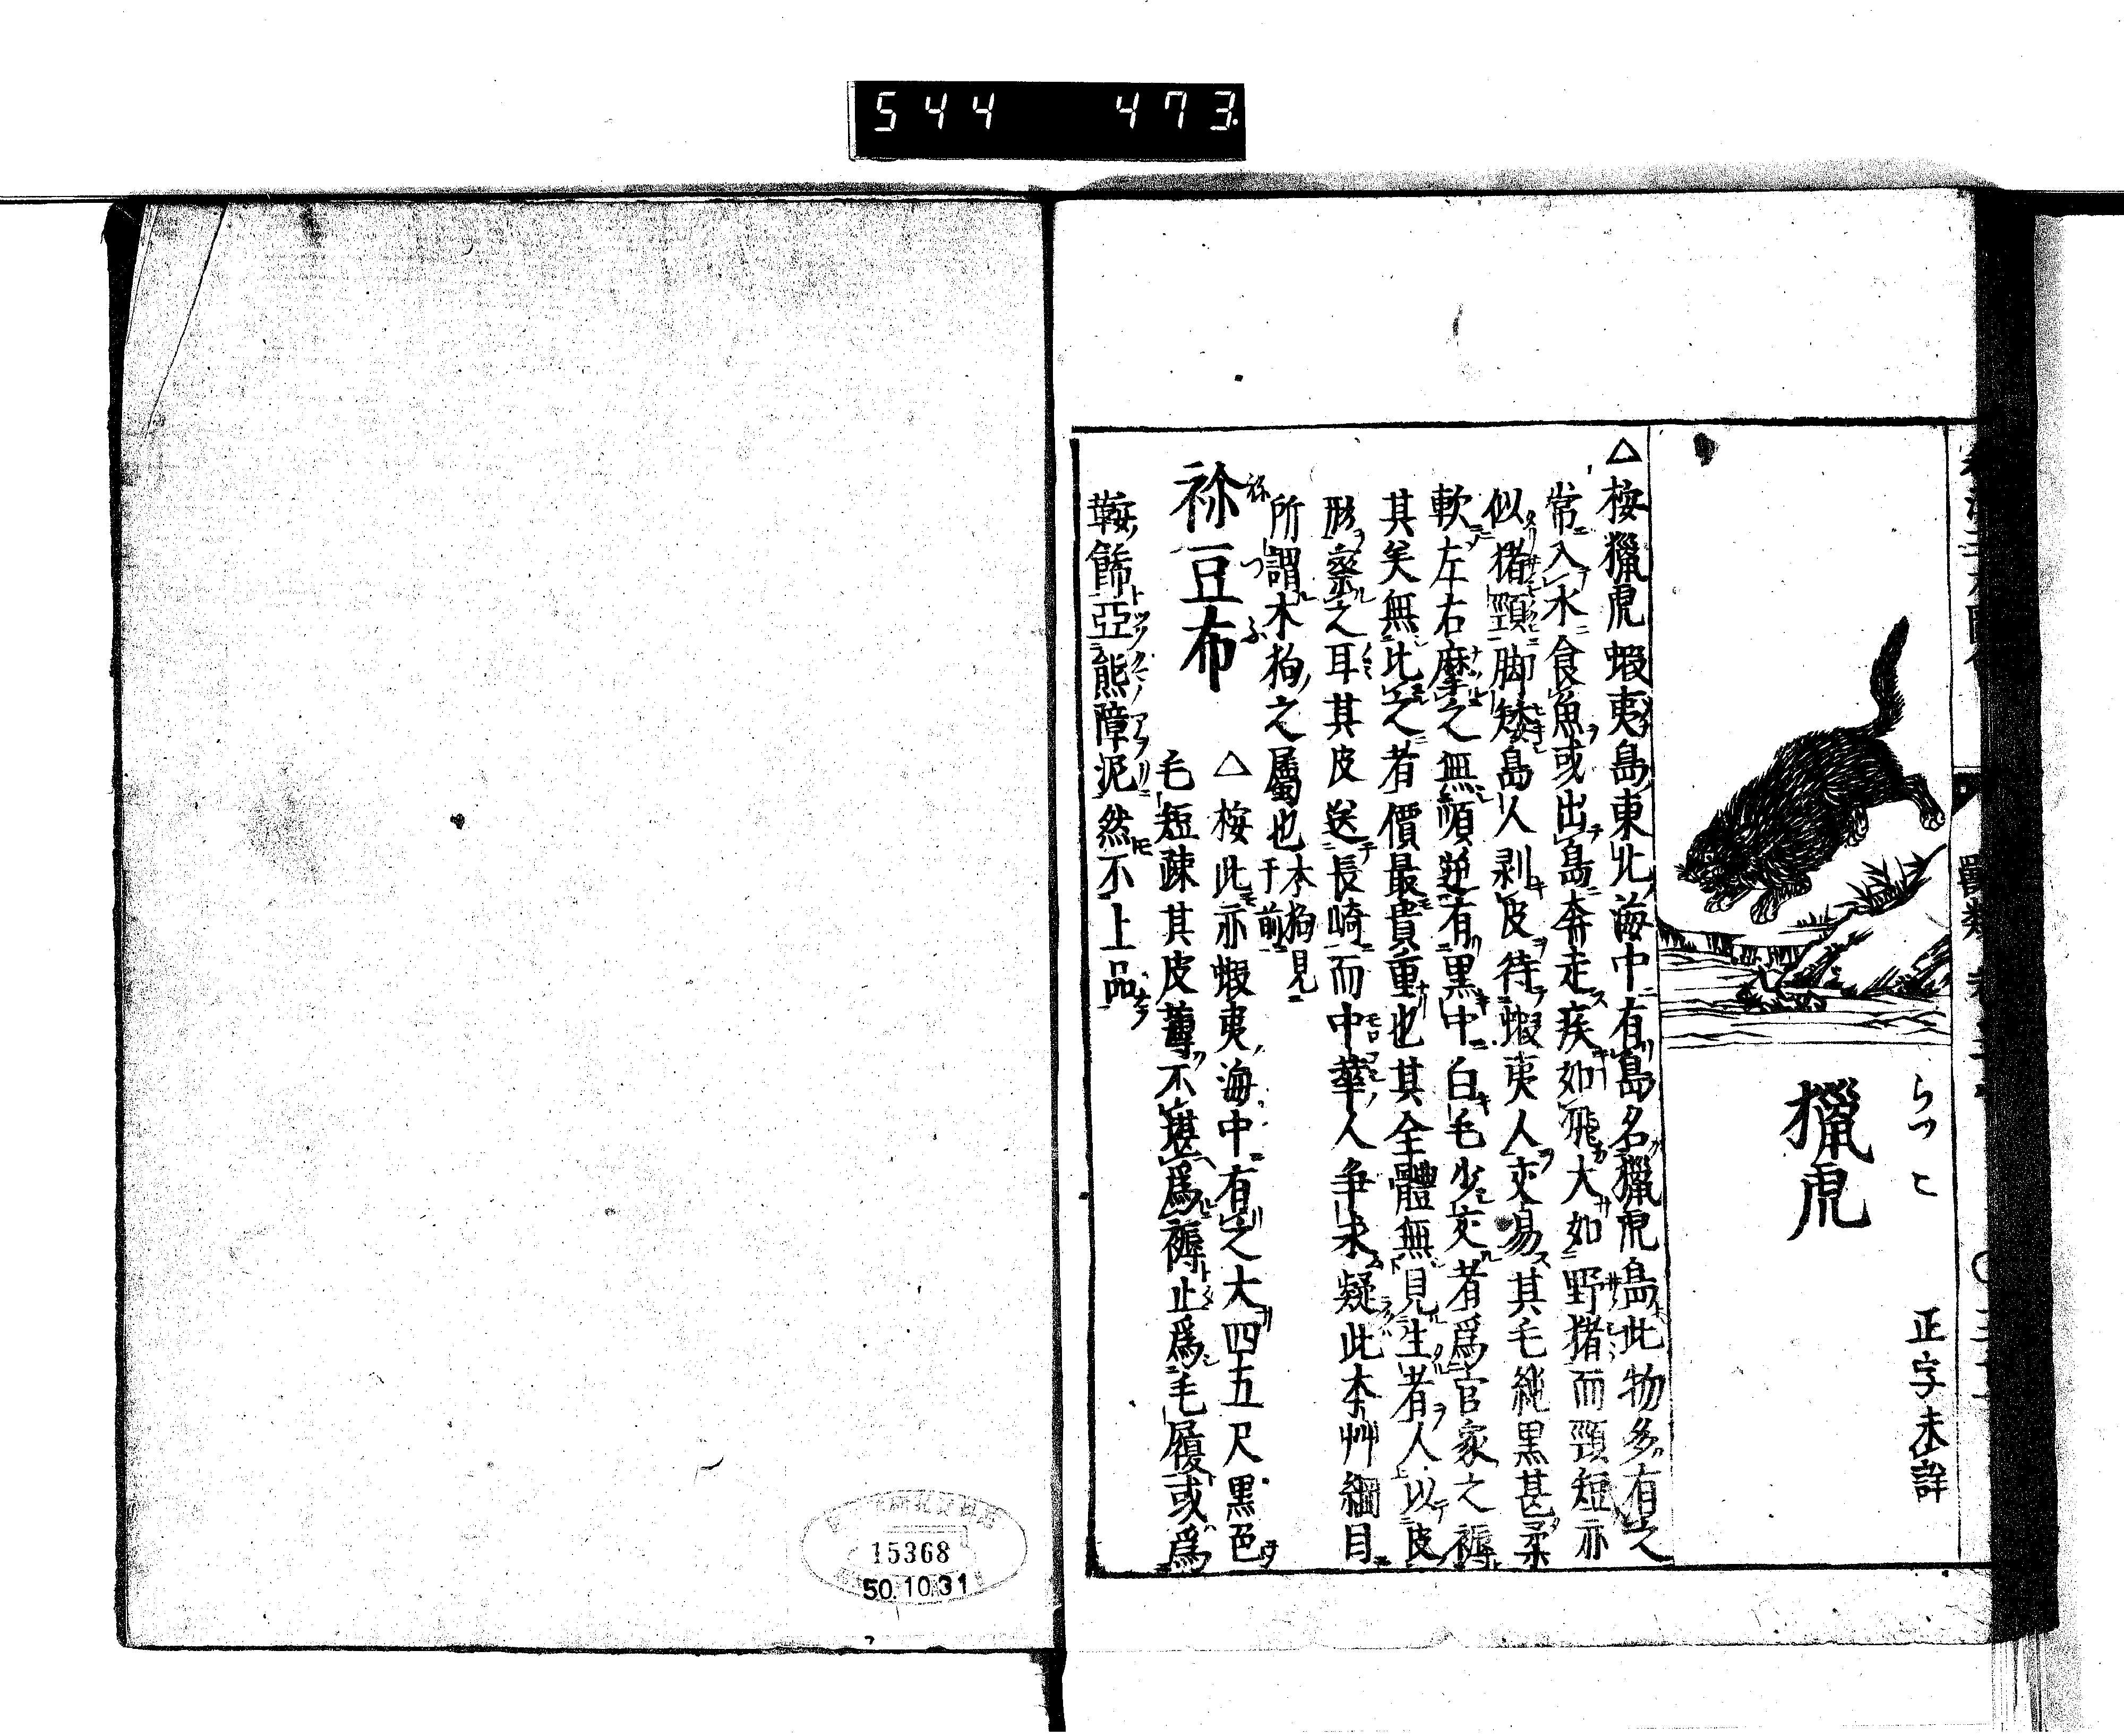 544 473
獸類
らつこ
獵虎
正字未詳
△桉獵虎蝦夷島東北海中有島名獵虎島此物多有之
常入水食魚或出島奔走疾如飛大如野猪而頸短亦
似猪頸脚矮島人剥皮待蝦夷人交易其毛純黒甚柔
軟左右摩之無順逆有黒中白毛少交者爲官家之褥
其美無比之者價最貴重也其全體無見生者人以皮
形察之耳其皮送長崎而中華人争求疑此本艸綱目
所謂木狗之屬也木狗見于前
祢豆布
祢つふ
△桉此亦蝦夷海中有之大四五尺黒色
毛短疎其皮薄不堪爲褥止爲毛履或爲
鞍餙亞熊障泥然不上品
15368
50.10.31